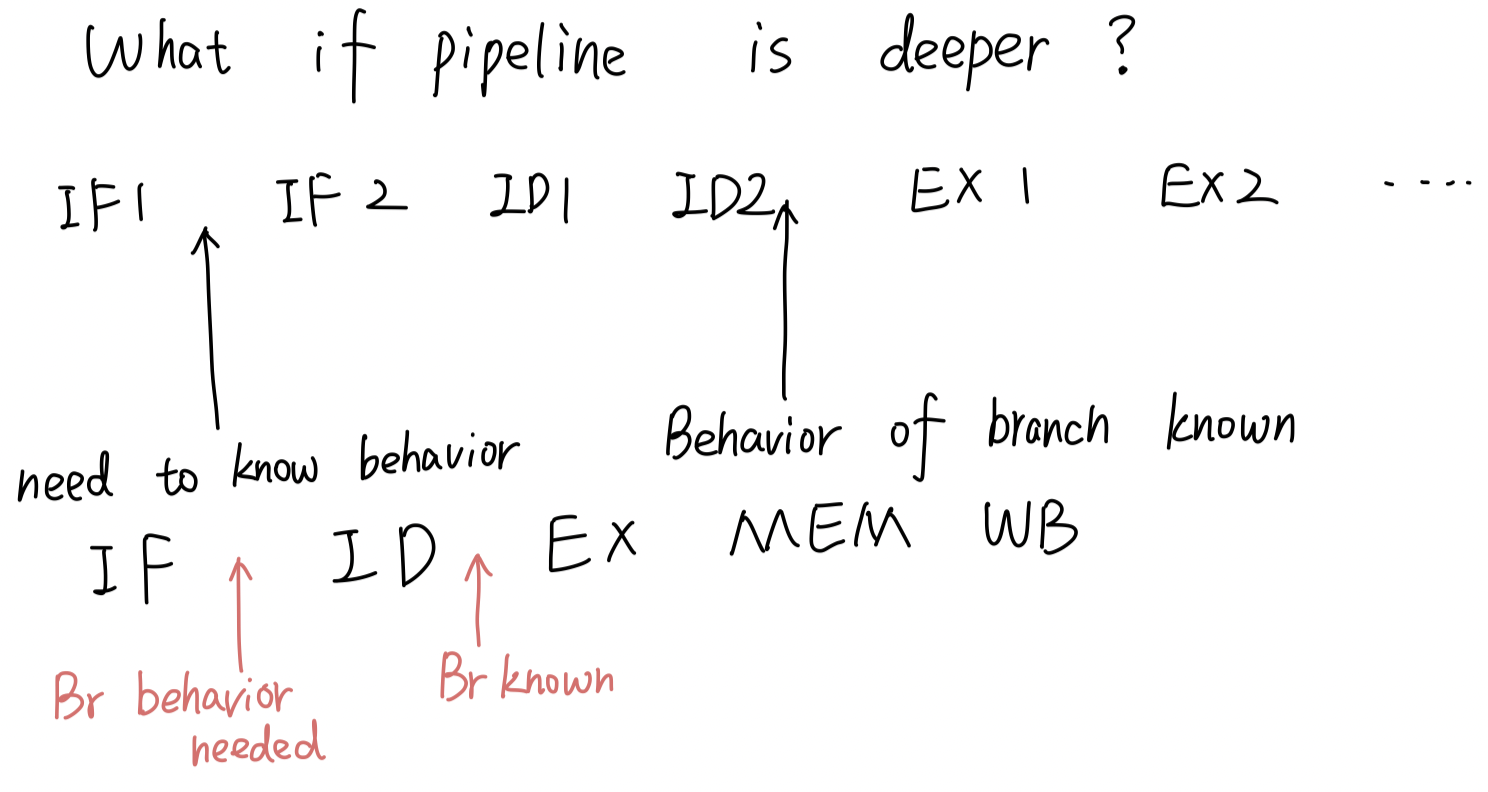 What if pipeline is deeper ?
IF1 IF2 ID1 ID2 EX 1 EX2 .....
need to know behavior
Behavior of branch known
IF ID EX MEM WB
Br behavior
needed
Br known